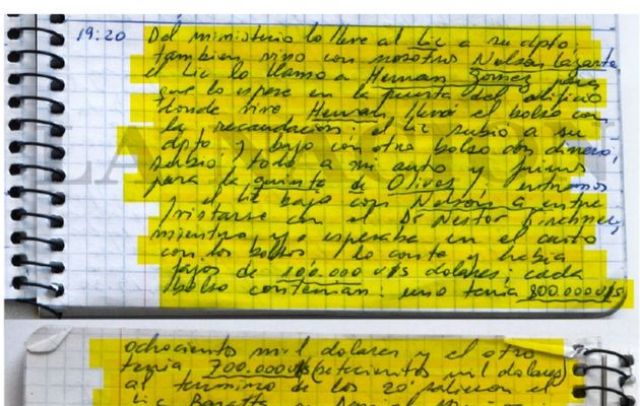 19:20 Del ministerio lo lleve al Lic a su dpto,
tambien vino con nosotros Nelson Lazarte
el Lic lo llamo a Hernan Gomez para
que lo espere en la puerta del edificio
donde vive Hernan, llevó el bolso con
la recaudacion: el Lic subio a su
dpto y bajo con otro bolso con dinero,
subio todo a mi auto y fuimos
para la quinta de Olivos, entramos
y el Lic bajo con Nelson a entre
vistarse con el Dr Nestor Kirchner,
mientras yo esperaba en el auto
con los bolsos, lo conte y habia
fajos de 100.000 U$S dolares; cada
bolso contenian: uno tenia 800.000 U$S
ochocientos mil dolares y el otro
tenia 700.000 U$S (setecientos mil dolares)
al termino de los 20' salieron el
Lic Baratta
LA NACION